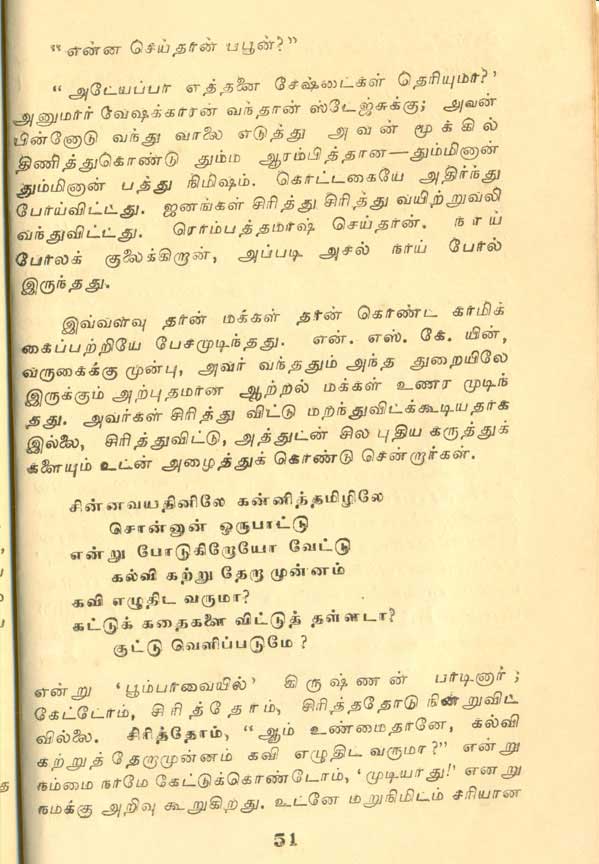 “என்ன செய்தான் பபூன்?”
“ அடேயப்பா எத்தனை சேஷ்டைகள் தெரியுமா?’
அனுமார் வேஷக்காரன் வந்தான் ஸ்டேஜுக்கு; அவன்
பின்னோடு வந்து வாலை எடுத்து அவன் மூக்கில்
திணித்துகொண்டு தும்ம ஆரம்பித்தான—தும்மினான்
தும்மினான் பத்து நிமிஷம். கொட்டகையே அதிர்ந்து
போய்விட்டது. ஜனங்கள் சிரித்து சிரித்து வயிற்றுவலி
வந்துவிட்டது. ரொம்பத்தமாஷ் செய்தான். நாய்
போலக் குலைக்கிறான், அப்படி அசல் நாய் போல
இருந்தது.
இவ்வளவு தான் மக்கள் தான் கொண்ட காமிக்
கைப்பற்றியே பேசமுடிந்தது. என். எஸ். கே. யின்,
வருகைக்கு முன்பு, அவர் வந்ததும் அந்த துறையிலே
இருக்கும் அற்புதமான ஆற்றல் மக்கள் உணர முடிந்
தது. அவர்கள் சிரித்து விட்டு மறந்துவிடக்கூடியதாக
இல்லை, சிரித்துவிட்டு, அத்துடன் சில புதிய கருத்துக்
களையும் உடன் அழைத்துக் கொண்டு சென்றார்கள்.
சின்னவயதினிலே கன்னித்தமிழிலே
சொன்னான் ஒருபாட்டு
என்று போடுகிறாயோ வேட்டு
கல்வி கற்று தேறாமுன்னம்
கவி எழுதிட வருமா?
கட்டுக் கதைகளை விட்டுத் தள்ளடா?
குட்டு வெளிப்படுமே ?
என்று ‘பூம்பாவையில்’ கிருஷ்ணன் பாடினார் ;
கேட்டோம், சிரித்தோம், சிரித்ததோடு நின்றுவிட
வில்லை. சிரித்தோம், “ஆம் உண்மைதானே, கல்வி
கற்றுத் தேறாமுன்னம் கவி எழுதிட வருமா?” என்று
நம்மை நாமே கேட்டுக்கொண்டோம், ‘முடியாது!’ எனறு
நமக்கு அறிவு கூறுகிறது. உடனே மறுநிமிடம் சரியான
51